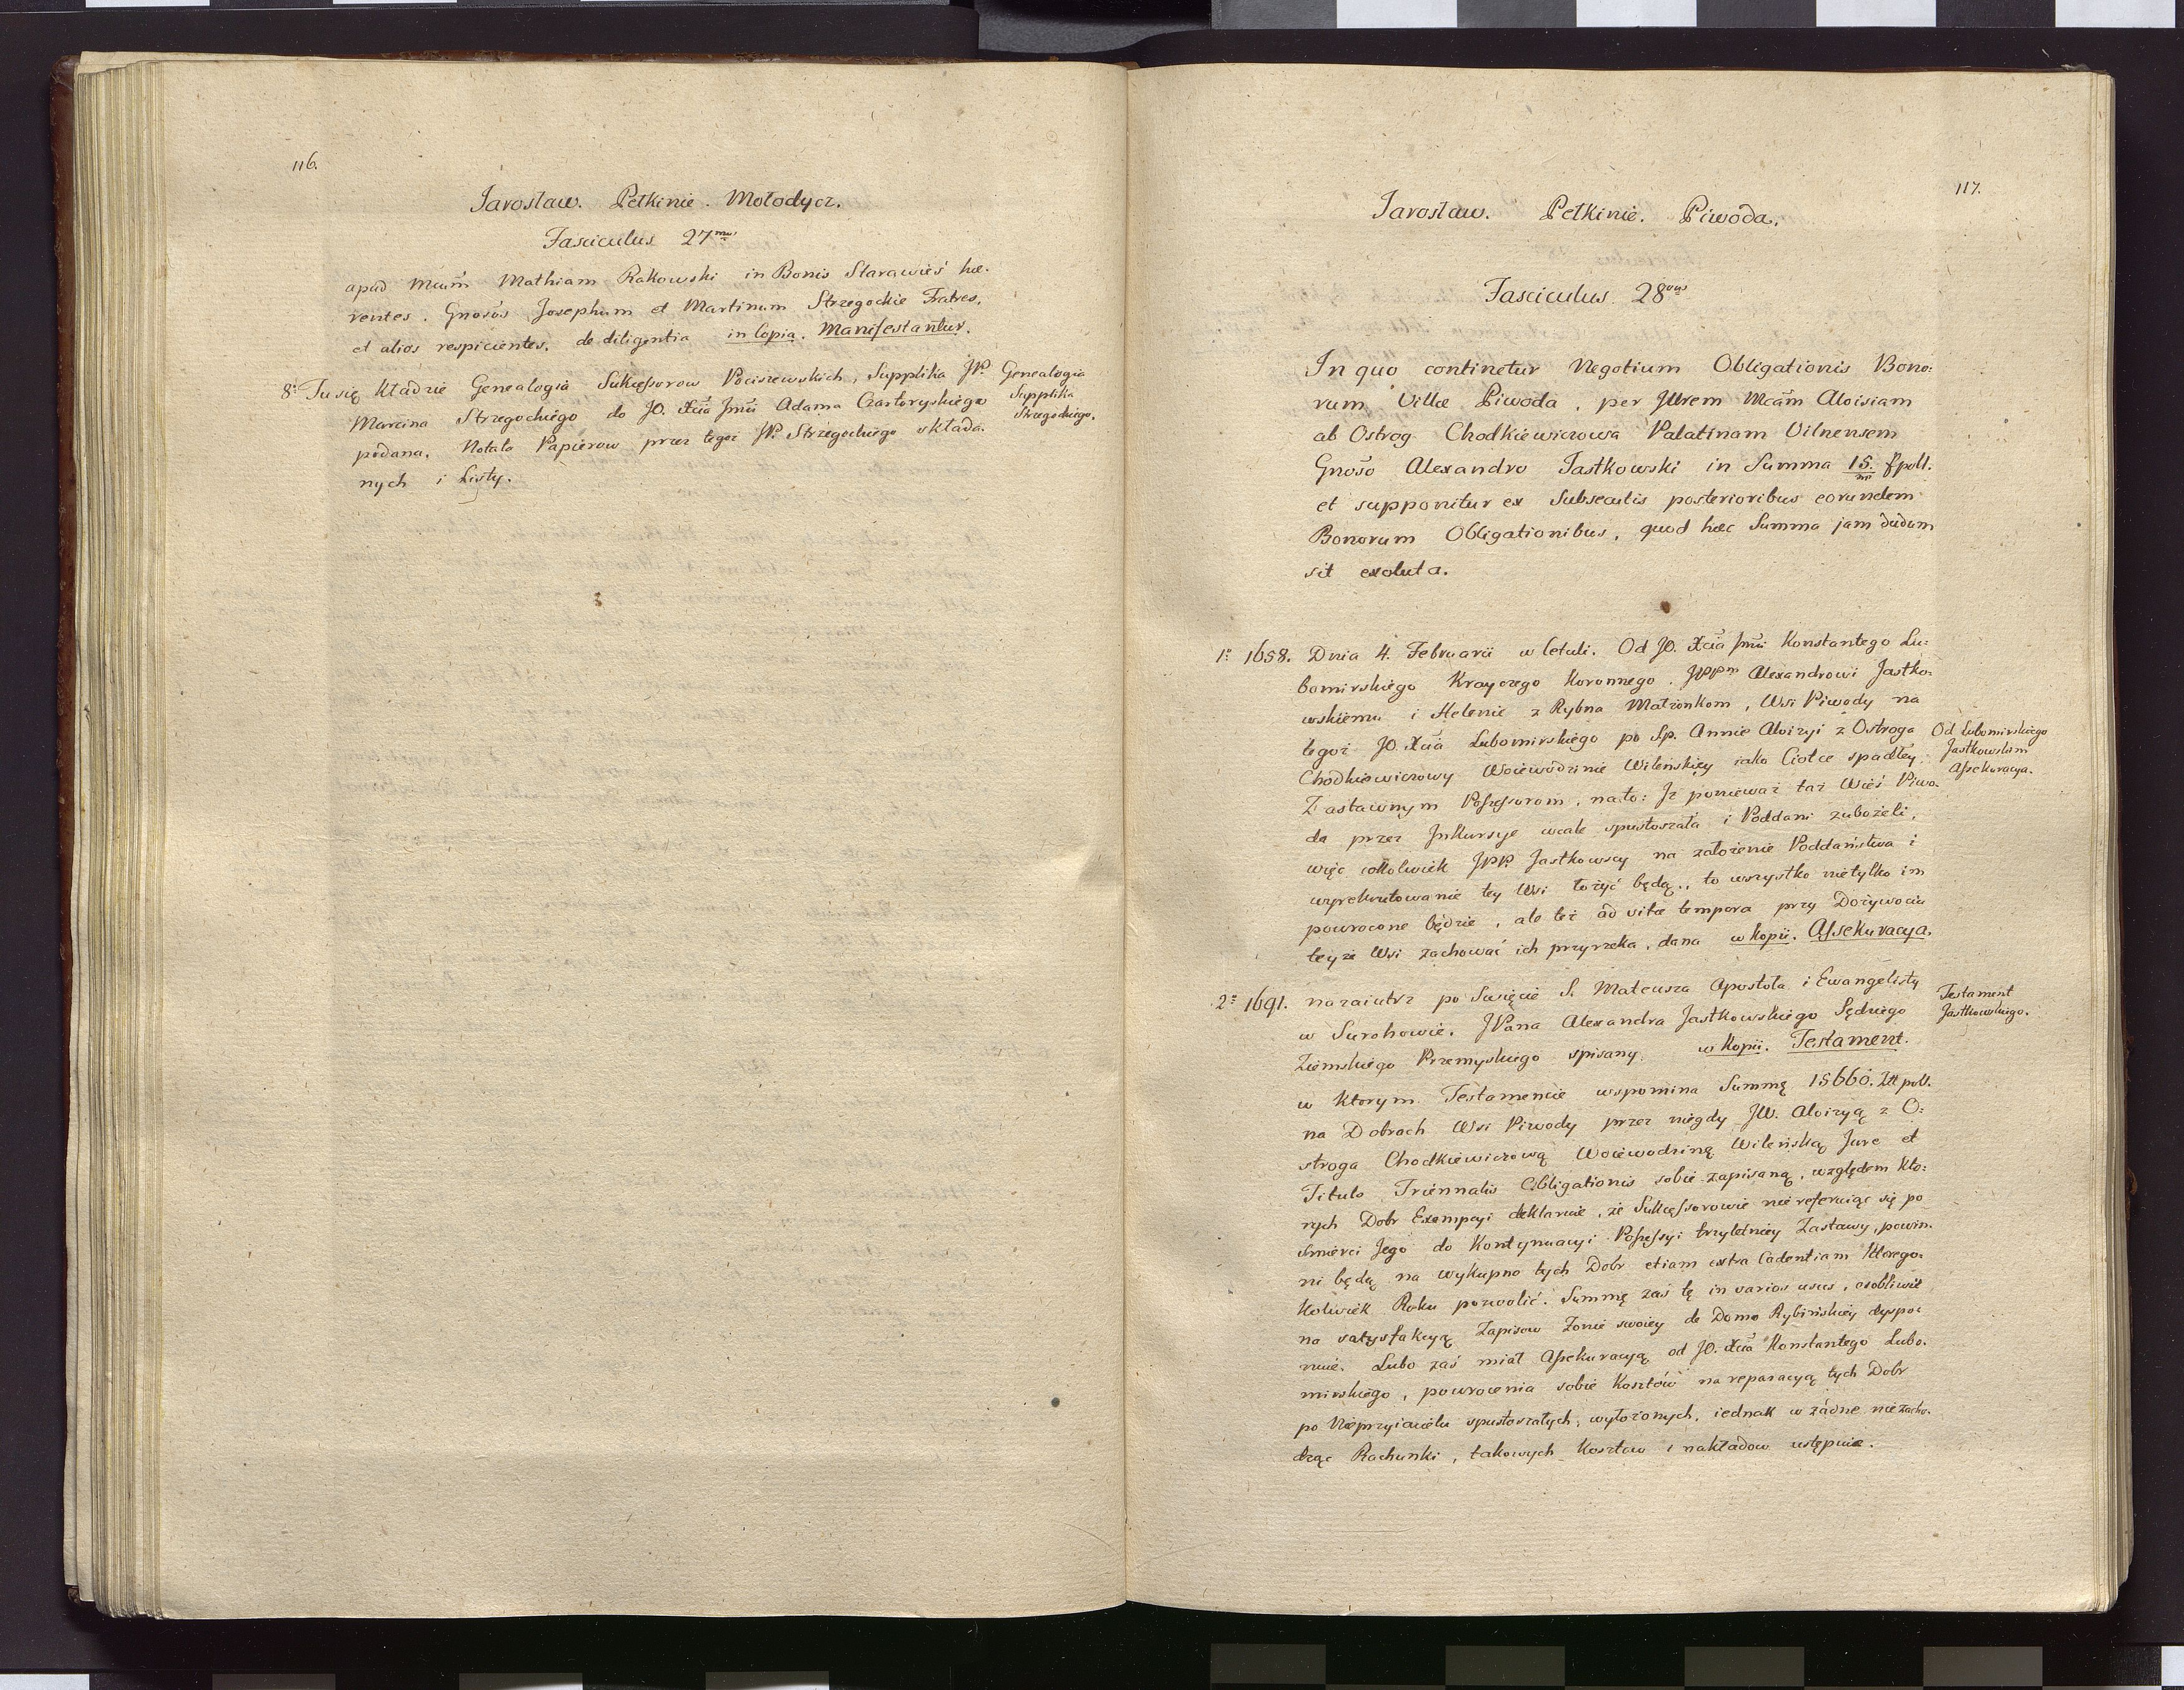 116.
Jarosław. Pełkinie. Mołodycz.
Fasciculus 27mus
apud Mcum Mathiam Rakowski in Bonis Starawieś hæ-
rentes. Gnosos Josephum et Martinum Strzegockie Fratres,
et alios respicientes, de diligentia in Copia. Manifestantur.
8° Tu się kładzie Genealogia Sukcessorow Pociszewskich, Supplika JP.
Marcina Strzegockiego do JO. Xcia Jmci Adama Czartoryskiego
podana, Notata Papierow przez tegoż JP. Strzegockiego składa-
nych i Listy.
Genealogia
Supplika
Strzegockiego.
117.
Jarosław. Pełkinie. Piwoda.
Fasciculus 28vus
In quo continetur Negotium Obligationis Bono-
rum Villæ Piwoda, per Jllrem Mcam Aloisiam
ab Ostrog Chodkiewiczowa Palatinam Vilnensem
Gnoso Alexandro Jastkowski in Summa 15/m fpoll.
et supponitur ex Subsecutis posterioribus eorundem
Bonorum Obligationibus, quod hæc Summa jam dudum
sit exoluta.
1° 1658. Dnia 4. Februarii w Cetuli. Od JO. Xcia Jmci Konstantego Lu-
bomirskiego Krayczego Koronnego. JPPm Alexandrowi Jastko-
wskiemu i Helenie z Rybna Małżonkom, Wsi Piwody na
tegoż JO. Xcia Lubomirskiego po Sp. Annie Aloizyi z Ostroga
Chodkiewiczowy Woiewodzinie Wileńskiey iako Ciotce spadłey
Zastawnym Possessorom, na to: Jż ponieważ taż Wieś Piwo-
da przez Jnkursye wcale spustoszała i Poddani zubożeli,
więc cokolwiek JPP. Jastkowscy na założenie Poddaństwa i
wyrekutowanie tey Wsi łożyć będą, to wszystko nietylko im
powrocone będzie, ale też ad vitæ tempora przy Dożywociu
teyże Wsi zachować ich przyrzeka, dana w kopii. Assekuracya.
Od Lubomirskiego
Jastkowskim
Assekuracya.
2° 1691. nazaiutrz po Swięcie S. Mateusza Apostoła i Ewangelisty
w Surohowie. JPana Alexandra Jastkowskiego Sędziego
Ziemskiego Przemyskiego spisany. w Kopii. Testament.
Testament
Jastkowskiego.
w ktorym Testamencie wspomina Summę 15660. Złł poll.
na Dobrach Wsi Piwody przez niegdy JW. Aloizyą z O-
stroga Chodkiewiczową Woiewodziną Wileńską Jure et
Titulo Triennalis Obligationis sobie zapisaną, względem kto-
rych Dobr Exempcyi deklaruie, że Sukcessorowie nie referuiąc się po
śmierci Jego do Kontynuacyi Possessyi trzyletniey Zastawy, powin-
ni będą na wykupno tych Dobr etiam extra Cadentiam ktorego-
kolwiek Roku pozwolić. Summę zaś tę in varios usus, osobliwie
na satysfakcyą Zapisow Żonie swoiey de Domo Rybińskiey dyspo-
nuie. Lubo zaś miał Assekuracyą od JO. Xcia Konstantego Lubo-
mirskiego, powrocenia sobie Kosztów na reparacyą tych Dobr
po Nieprzyiacielu spustoszałych, wyłożonych, iednak w żadne nie zacho-
dząc Rachunki, takowych Kosztow i nakładow ustępuie.